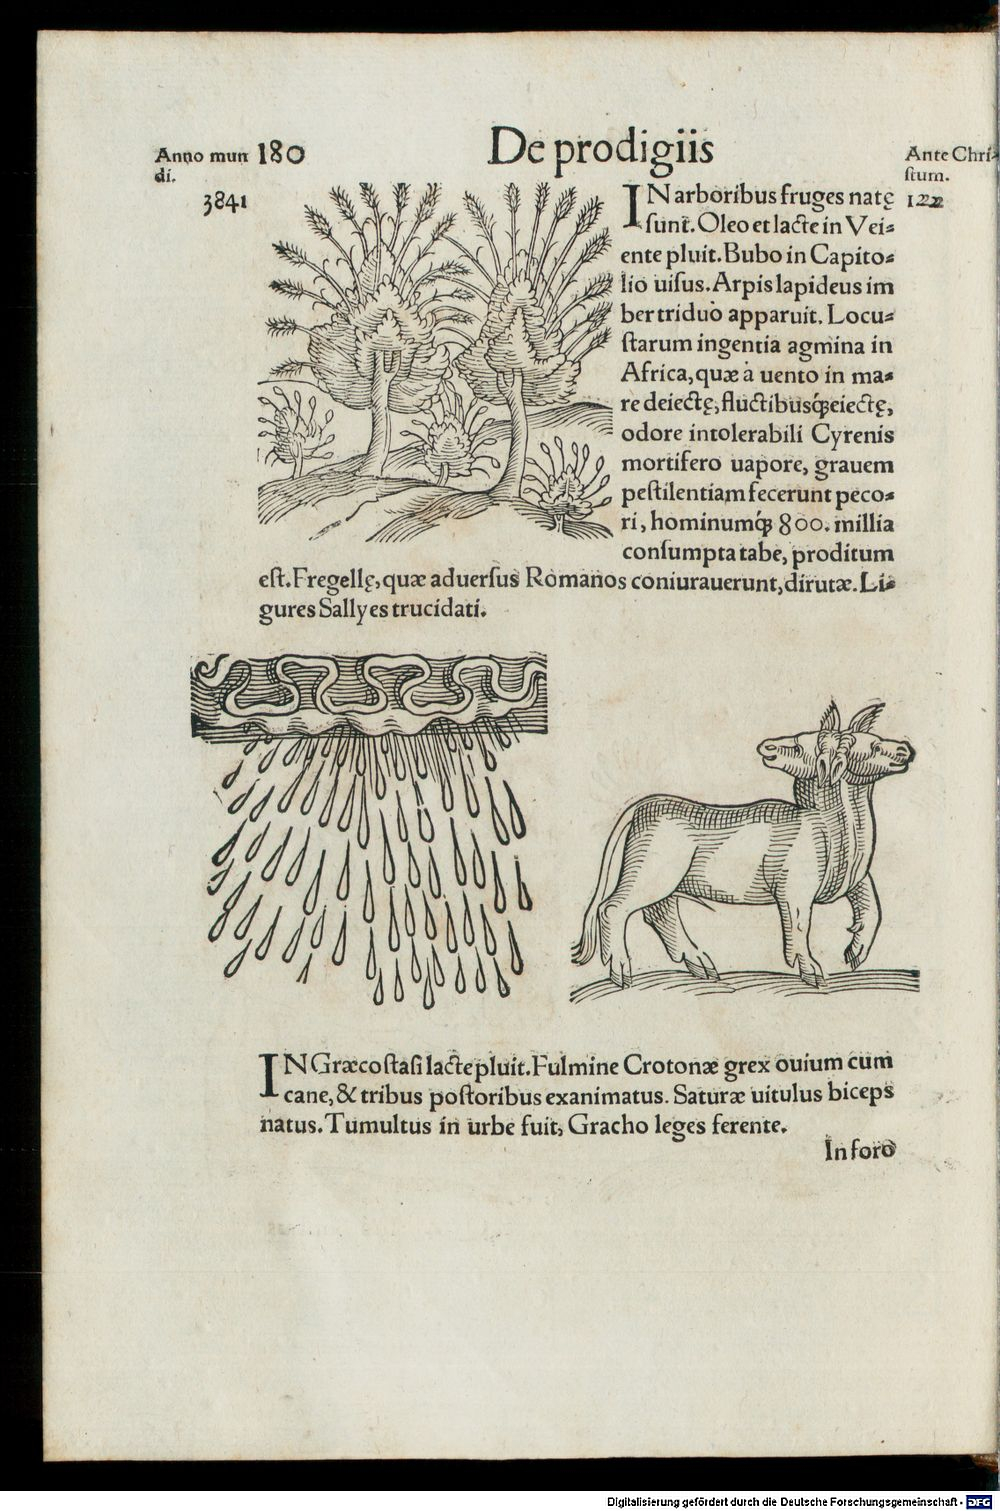 Anno mun 180 De prodigiis Ante Chri⸗
di. stum.
3841 122
IN arboribus fruges natę
sunt. Oleo et lacte in Vei⸗
ente pluit. Bubo in Capito⸗
lio uisus. Arpis lapideus im
ber triduo apparuit. Locu⸗
starum ingentia agmina in
Africa, quæ à uento in ma⸗
re deiectę, fluctibusq́ꝫ eiectę,
odore intolerabili Cyrenis
mortifero uapore, grauem
pestilentiam fecerunt peco⸗
ri, hominumq́ꝫ 800. millia
consumpta tabe, proditum
est. Fregellę, quæ aduersus Romanos coniurauerunt, dirutæ. Li⸗
gures Sallyes trucidati.
IN Græcostasi lacte pluit. Fulmine Crotonæ grex ouium cum
cane, & tribus postoribus exanimatus. Saturæ uitulus biceps
natus. Tumultus in urbe fuit, Gracho leges ferente.
In foro
Digitalisierung gefördert durch die Deutsche Forschungsgemeinschaft - DFG